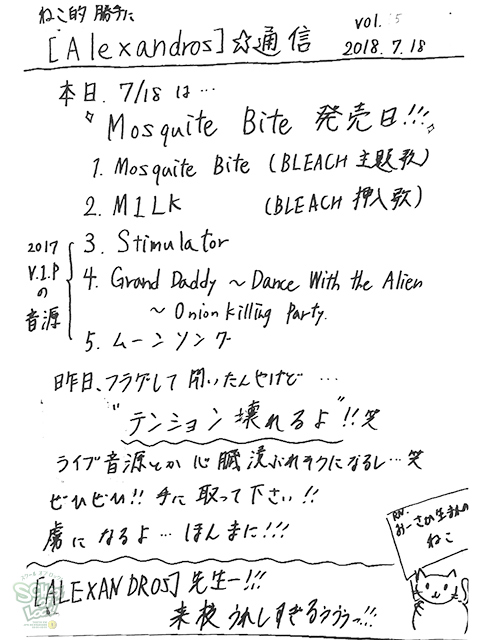 ねこ的 勝手に
[Alexandros]☆通信
vol. 5
2018.7.18
本日、7/18は…
"Mosquite Bite 発売日!!!"
1. Mosquite Bite (BLEACH 主題歌)
2. MILK (BLEACH 押入歌)
2017
V.I.P
の
音源
3. Stimulator
4. Grand Daddy ～Dance With the Alien
～Onion Killing Party.
5. ムーンソング
昨日、フラゲして聞いたんやけど…
"テンション壊れるよ"!!笑
ライブ音源とか心臓潰ぶれそうになるし…笑
ぜひぜひ!!手に取って下さい!!
虜になるよ…ほんまに!!!
RN.
おーさか生まれの
ねこ
[ALEXANDROS]先生ー!!!
来校うれしすぎるぅぅぅっ!!